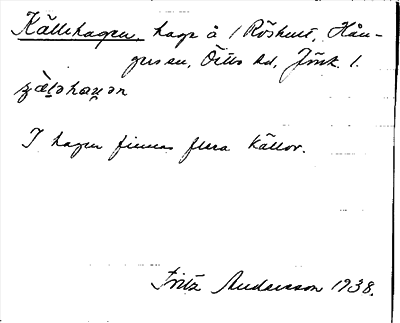 Källehagen, hage å 1 Röshult, Hån-
ger sn, Östbo hd, Jönk. l.
I hagen finnas flera källor.
Fritz Andersson 1938.